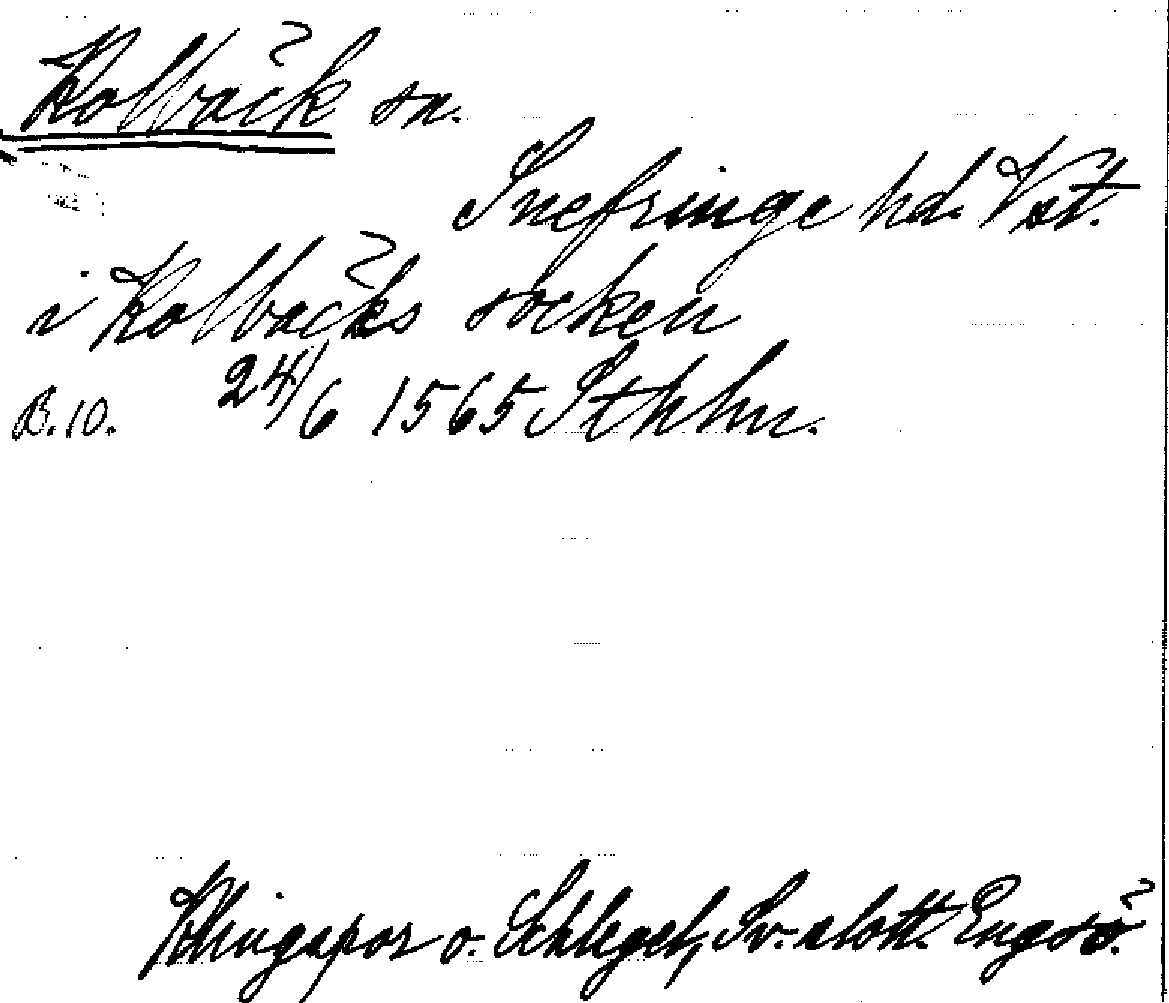 Kolbäck sn.
Snefringe hd. Vst.
i Kolbäcks socken
B.10. 24/6 1565 Sthhm.
Klingspor o. Schlegel, Sv. slott. Engsö.